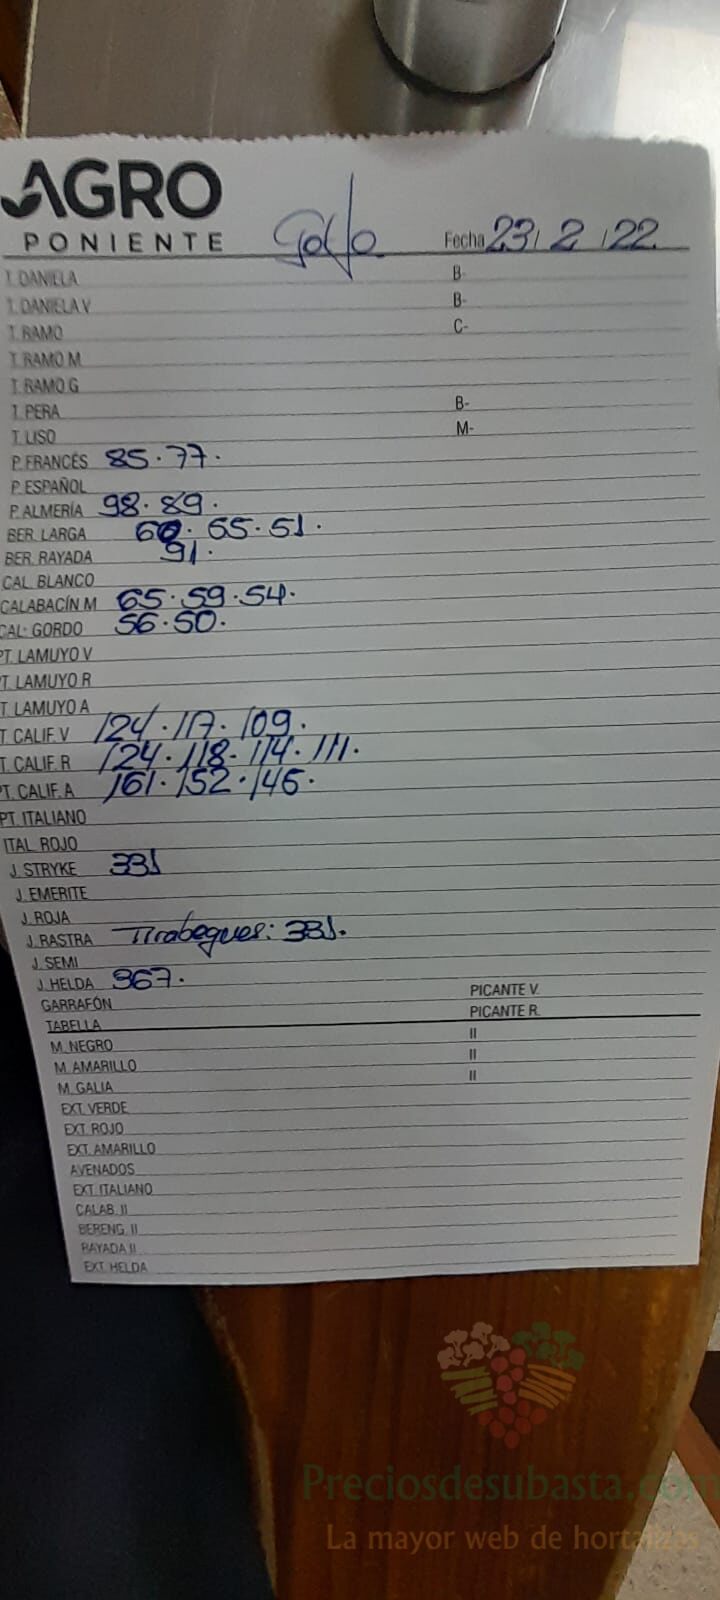 AGRO
PONIENTE Golfo Fecha 23/2/22
T. DANIELA B-
T. DANIELA V B-
T. RAMO C-
T. RAMO M
T. RAMO G
T. PERA B-
T. LISO M-
P. FRANCÉS 85.77.
P. ESPAÑOL
P. ALMERÍA 98.89.
BER. LARGA 60. 65.51.
BER. RAYADA 91.
CAL. BLANCO
CALABACÍN M 65.59.54.
CAL. GORDO 56.50.
PT. LAMUYO V
PT. LAMUYO R
PT. LAMUYO A
PT. CALIF. V 124.117.109.
PT. CALIF. R 124.118.114.111.
PT. CALIF. A 161.152.145.
PT. ITALIANO
ITAL. ROJO
J. STRYKE 331
J. EMERITE
J. ROJA
J. RASTRA Tirabeques: 331.
J. SEMI
J. HELDA 367.
GARRAFÓN PICANTE V.
TABELLA PICANTE R.
M. NEGRO II
M. AMARILLO II
M. GALIA II
EXT. VERDE
EXT. ROJO
EXT. AMARILLO
AVENADOS
EXT. ITALIANO
CALAB. II
BERENG. II
RAYADA II
EXT. HELDA
Preciosdesubasta.com
La mayor web de hortalizas